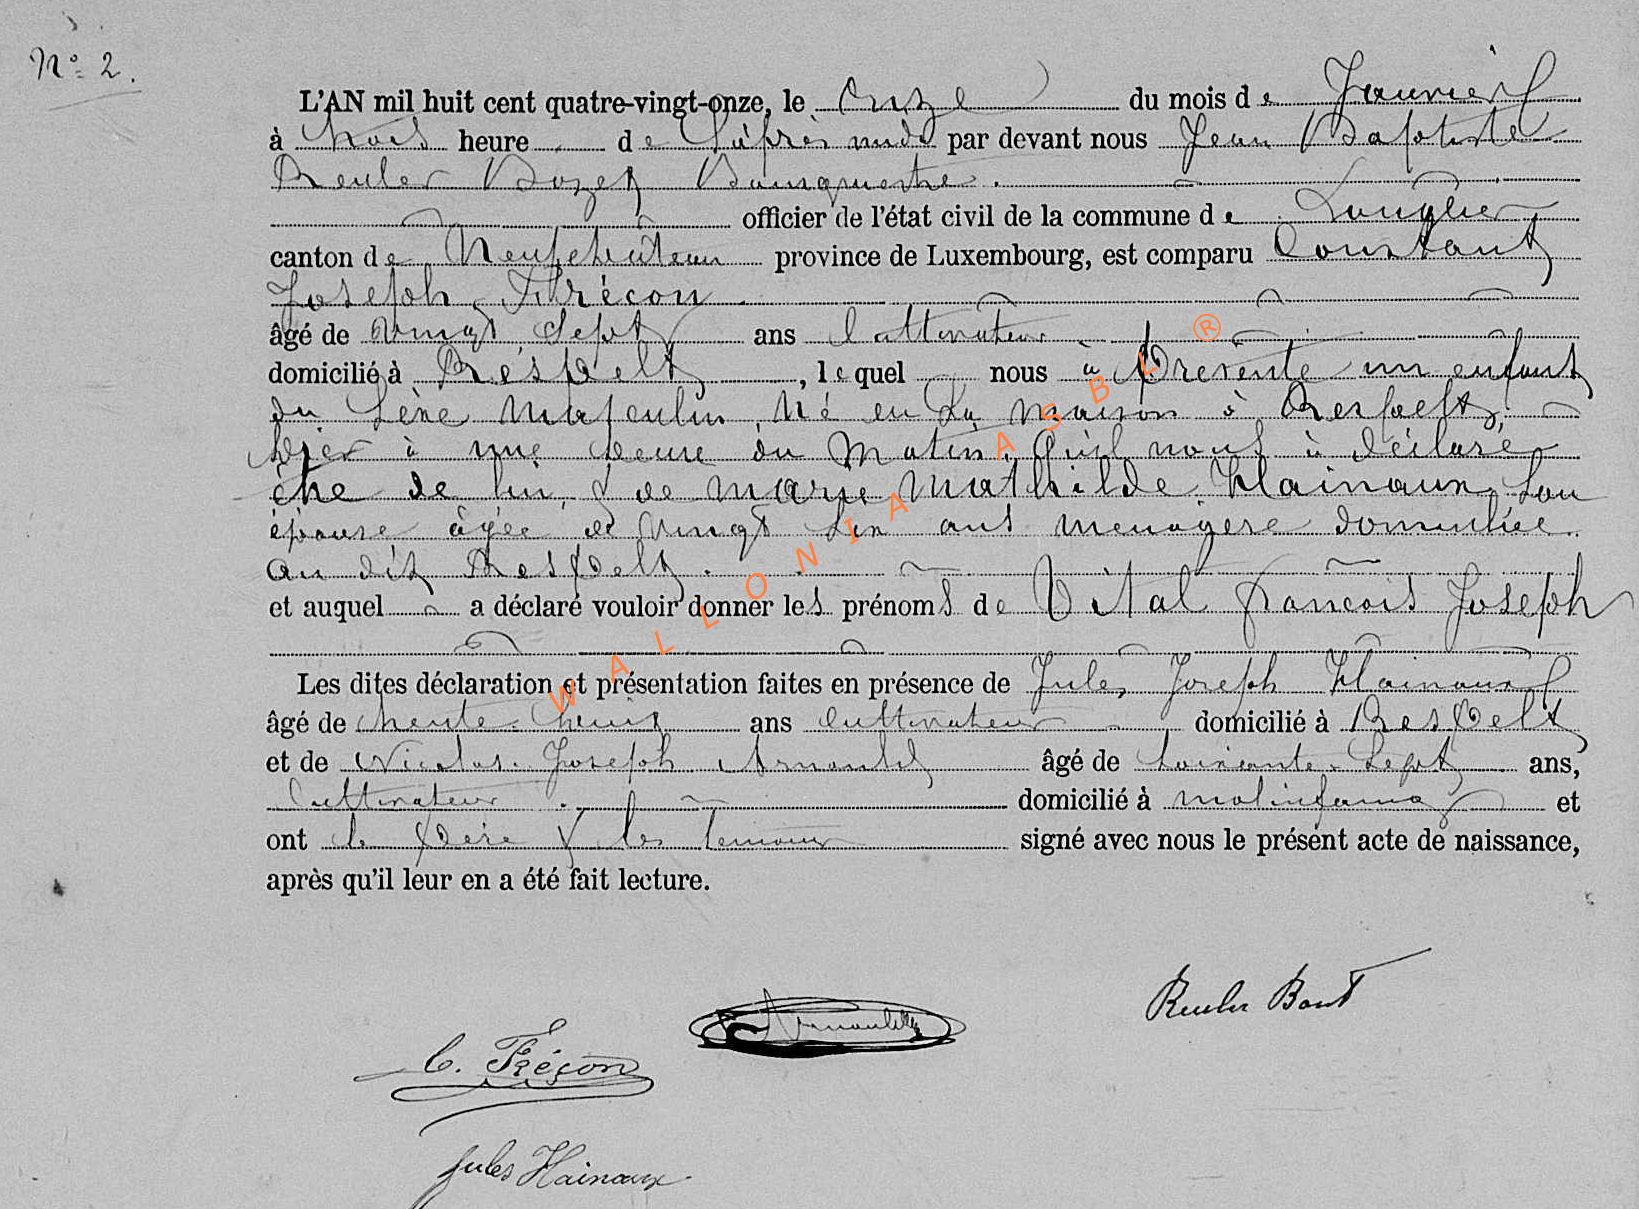 N° 2.
L'AN mil huit cent quatre-vingt-onze, le onze du mois de Janvier
à trois heure de L'après midi par devant nous Jean Baptiste
Reuler Bourgmestre.
officier de l'état civil de la commune de Longlier
canton de Neufchâteau province de Luxembourg, est comparu Constant
Joseph Frécon
âgé de vingt Sept ans Cultivateur
domicilié à Respelt, lequel nous à présenté un enfant
du Sexe Masculin, Né en Sa maison à Respelt,
hier à une heure du Matin, qu'il nous à déclaré
être de lui, & de Marie Mathilde Hainaux, Son
épouse âgée de vingt Six ans menagere domiciliée
au dit Respelt.
et auquel a déclaré vouloir donner les prénoms de Vital François Joseph
Les dites déclaration et présentation faites en présence de Jules Joseph Hainaux
âgé de trente ans Cultivateur domicilié à Respelt
et de Nicolas Joseph Arnould âgé de Soixante Sept ans,
Cultivateur domicilié à molinfaing et
ont le père & les temoins signé avec nous le présent acte de naissance,
après qu'il leur en a été fait lecture.
WALLONIA ASBL ®
Reuler
Arnould
C. Fréçon
Jules Hainaux